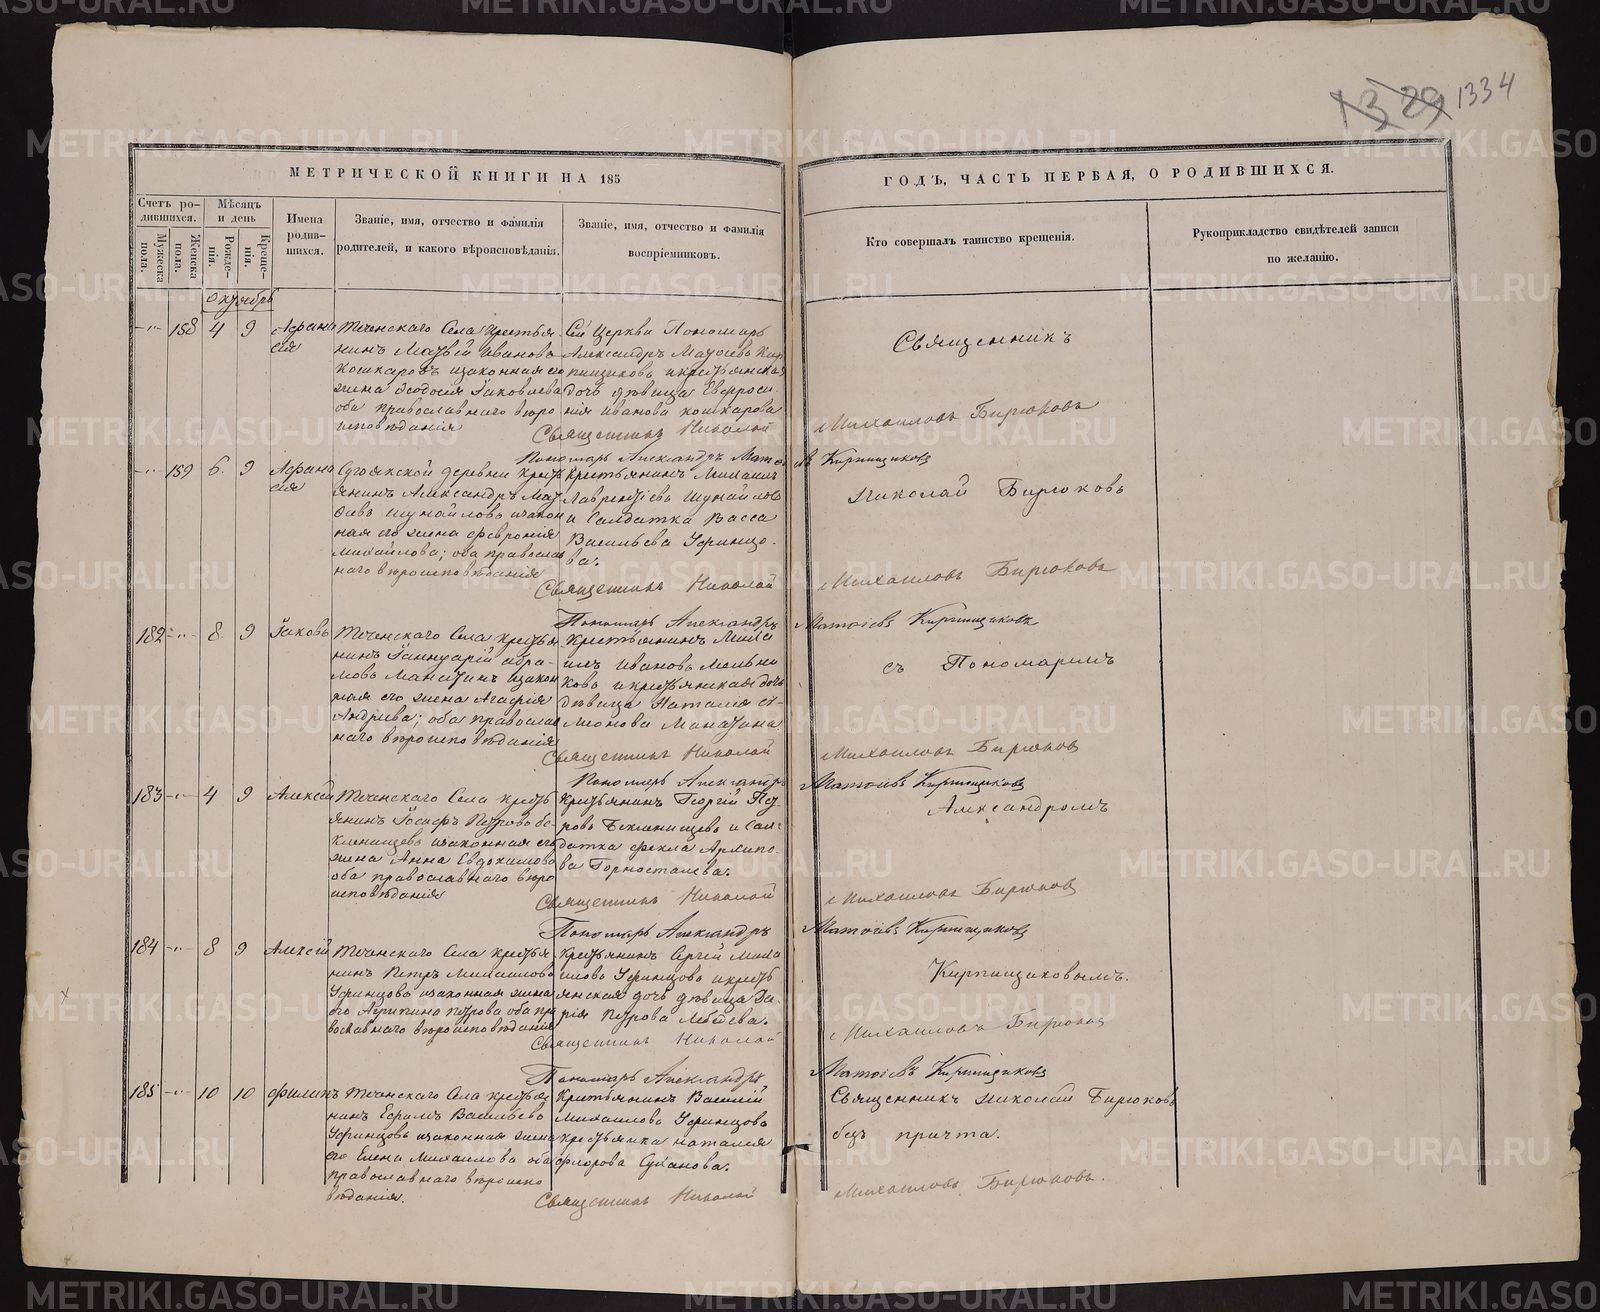 1329 1334
МЕТРИЧЕСКОЙ КНИГИ НА 185
ГОДЪ, ЧАСТЬ ПЕРВАЯ, О РОДИВШИХСЯ.
Счетъ ро-
дившихся.
Мужеска
пола.
Женска
пола.
Мѣсяцъ
и день
Рожде-
нія.
Креще-
нія.
Имена
родив-
шихся.
Званіе, имя, отчество и фамилія
родителей, и какого вѣроисповѣданія.
Званіе, имя, отчество и фамилія
воспріемниковъ.
Кто совершалъ таинство крещенія.
Рукоприкладство свидѣтелей записи
по желанію.
Октябрь
158 4 9
Теченскаго Села крестья
нинъ Матвѣй Ивановъ
Кошкаровъ и законная его
жена Ѳеодосія Іаковлева
оба православнаго вѣро
исповѣданія
Сей Церкви Пономарь
Александръ Матѳеевъ Кир
пищиковъ и крестьянская
дочь дѣвица Евфроси
нія Иванова Кошкарова
Священникъ
Священникъ Николай Михаиловъ Бирюковъ
Пономарь Александръ Матѳіевъ Кирпищиковъ
159 6 9
деревни крест
янинъ Александръ Мат
ѳіевъ Шумайловъ и закон
ная его жена Февронія
Михайлова; оба православ
наго вѣроисповѣданія
Крестьянинъ Михаилъ
Лаврентіевъ Шумайловъ
и Солдатка Васса
Васильева Уфинцо-
ва.
Николай Бирюковъ
Священникъ Николай Михаиловъ Бирюковъ
Пономарь Александръ Матѳіевъ Кирпищиковъ
182 8 9 Іаковъ
Теченскаго Села крестья
нинъ Іаннуарій Абра-
мовъ и закон
ная его жена Агафія
Андреева; оба православ
наго вѣроисповѣданія
Крестьянинъ
Ивановъ Мельни
ковъ и крестьянская дочь
дѣвица Наталія Си-
меонова
съ Пономаремъ
Священникъ Николай Михаиловъ Бирюковъ
Пономарь Александръ Матѳіевъ Кирпищиковъ
183 4 9 Алексѣй
Теченскаго Села кресть
янинъ Іосифъ Петровъ Бе-
кленищевъ и законная его
жена Анна Евдокимова
оба православнаго вѣро
исповѣданія
Крестьянинъ Георгій Пет
ровъ Бекленищевъ и Сол-
датка Фекла Архипо-
ва Горносталева.
Александромъ
Священникъ Николай Михаиловъ Бирюковъ
Пономарь Александръ Матѳіевъ Кирпищиковъ
184 8 9 Алексѣй
Теченскаго Села крестья
нинъ Петръ Михаиловъ
Уфинцовъ и законная жена
его Агрипина Петрова оба пра
вославнаго вѣроисповѣданія
Крестьянинъ Сергѣй Миха
иловъ Уфинцовъ и кресть
янская дочь дѣвица Да-
рія Петрова Лебедева.
Кирпищиковымъ.
Священникъ Николай Михаиловъ Бирюковъ
Пономарь Александръ Матѳіевъ Кирпищиковъ
185 10 10 Филипъ
Теченскаго Села крестья
нинъ Ефремъ Васильевъ
Уфинцовъ и законная жена
его Елена Михаилова оба
православнаго вѣроиспо
вѣданія.
Крестьянинъ Василій
Михаиловъ Уфинцовъ
крестьянка Наталія
Флорова Суханова.
Священникъ Николай Бирюковъ
безъ причта.
Священникъ Николай Михаиловъ Бирюковъ.
METRIKI.GASO-URAL.RU